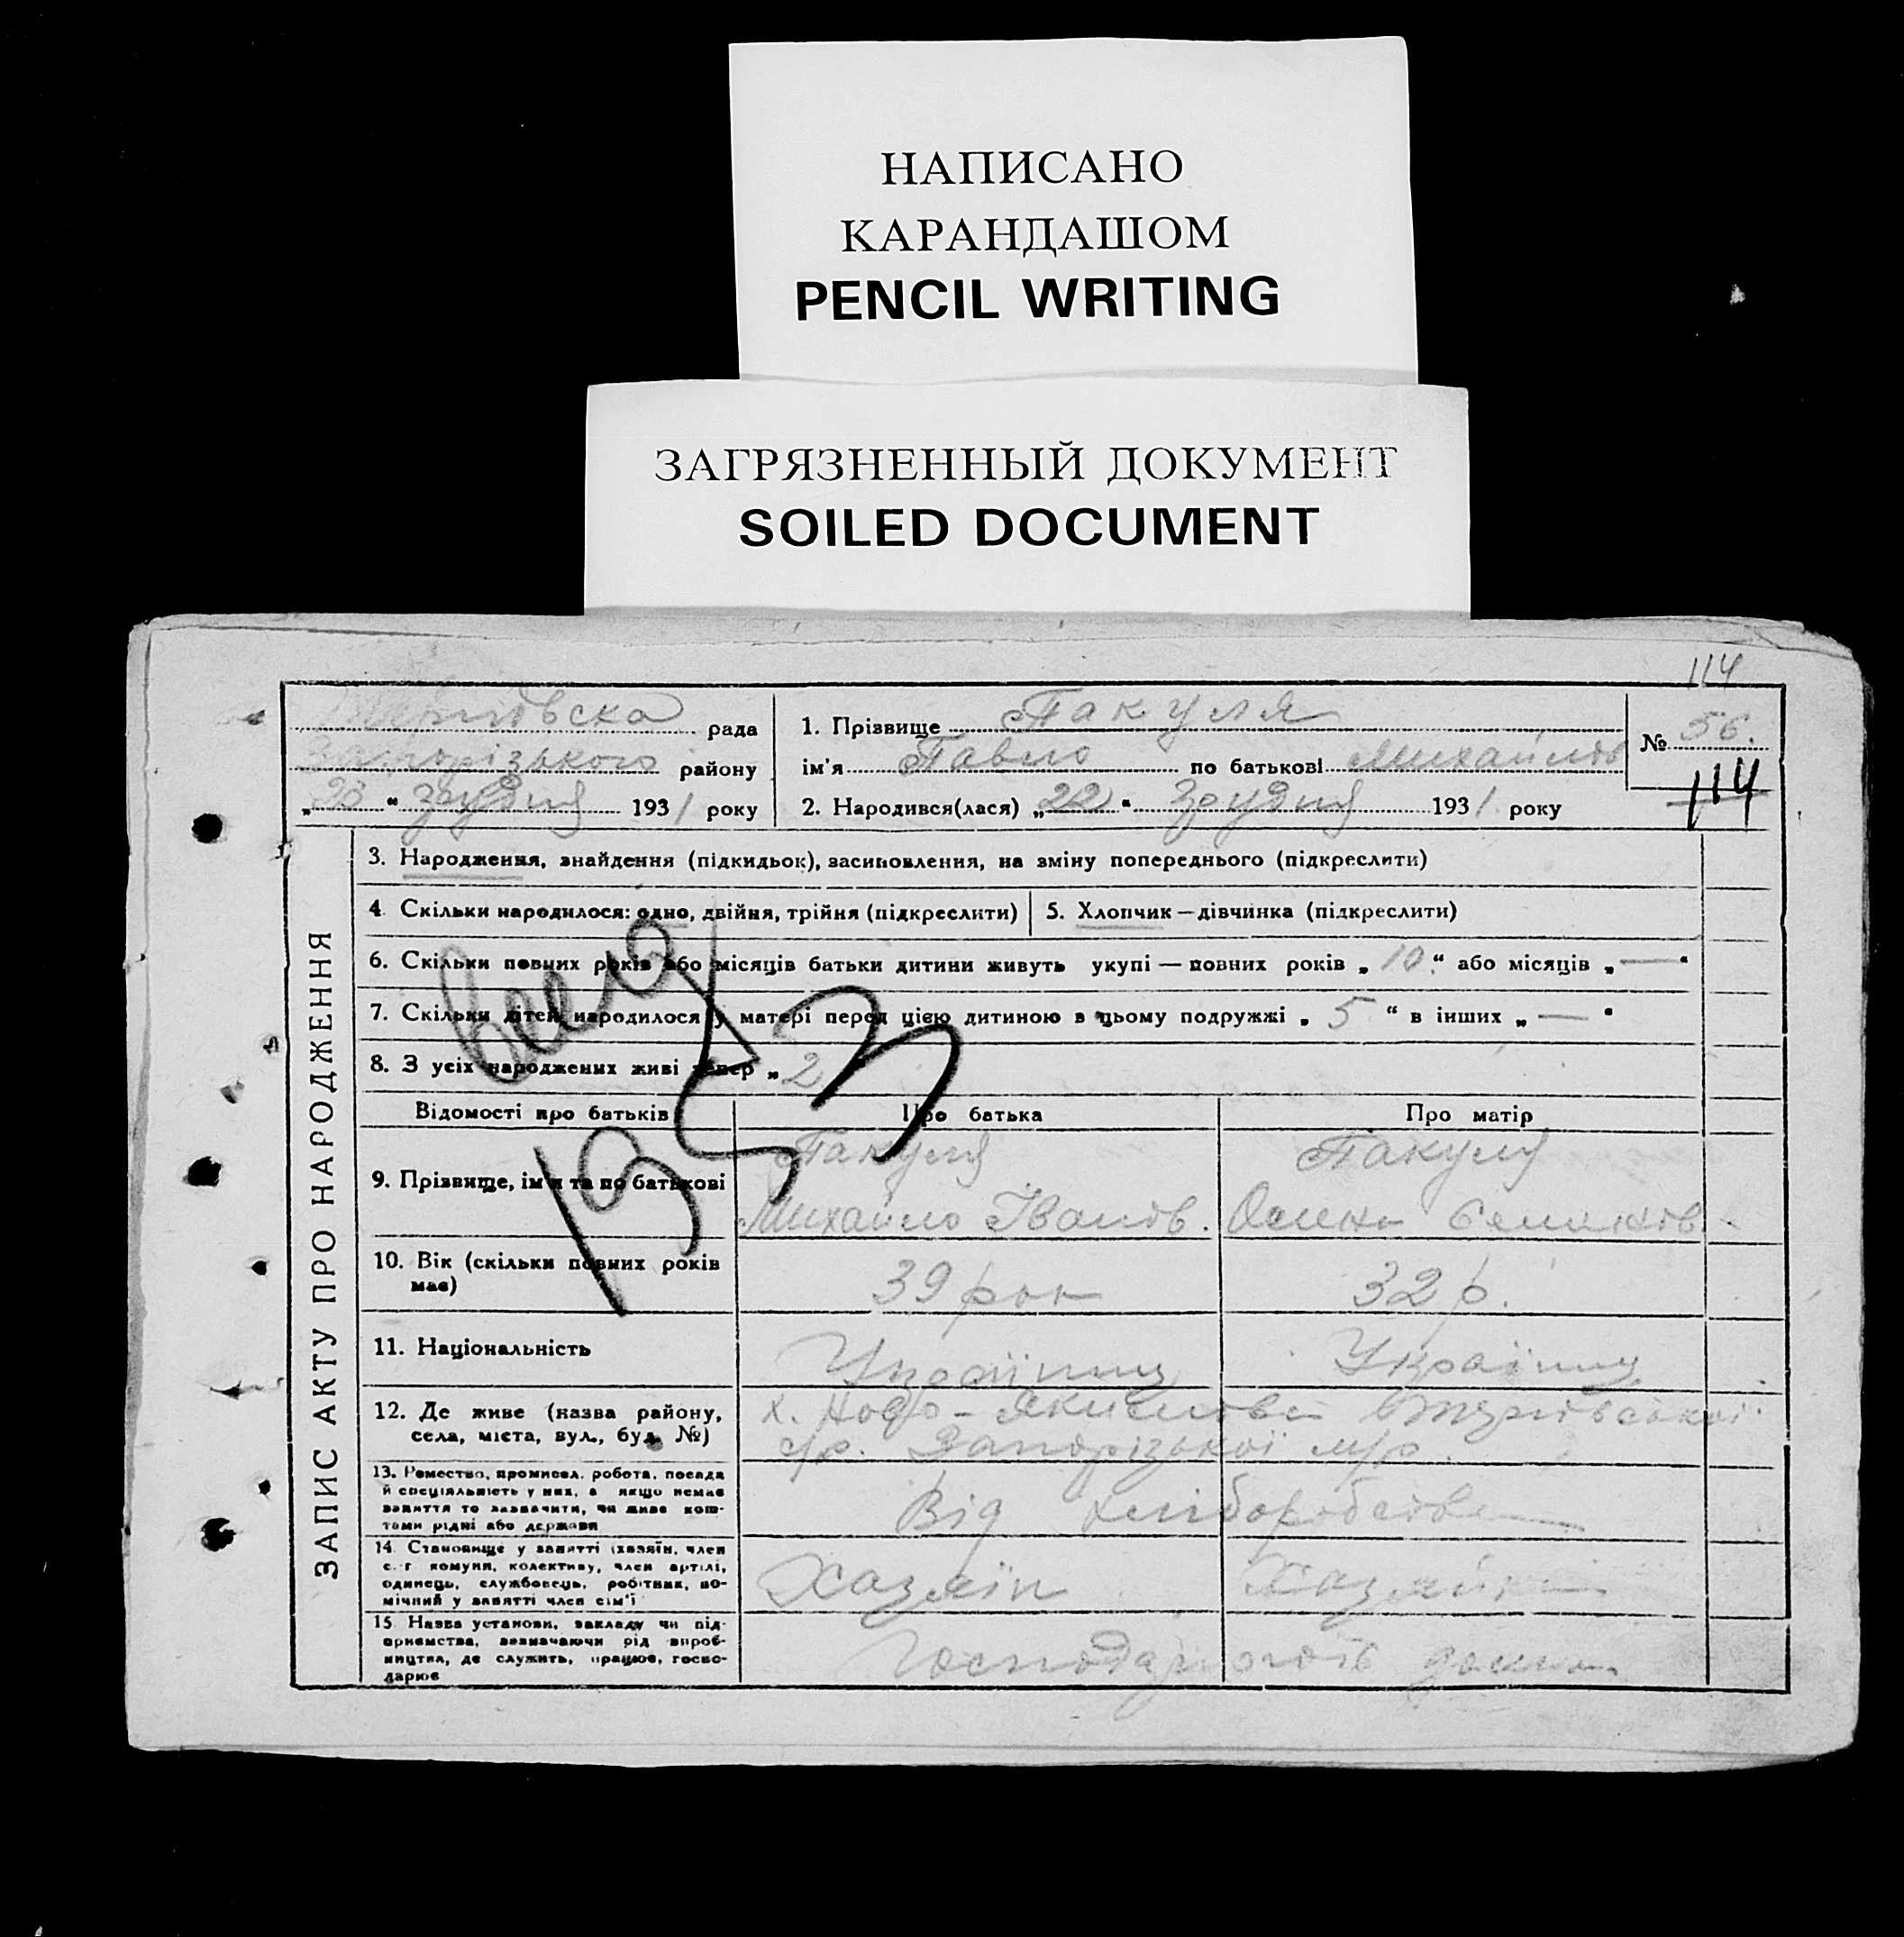 НАПИСАНО
КАРАНДАШОМ
PENCIL WRITING
ЗАГРЯЗНЕННЫЙ ДОКУМЕНТ
SOILED DOCUMENT
114
рада
Запорізького району
"23" грудня 1931 року
1. Прізвище Пакуля
ім'я Павло по батькові Михайлов
2. Народився(лася) „22" грудня 1931 року
№ 56.
114
ЗАПИС АКТУ ПРО НАРОДЖЕННЯ
3. Народження, знайдення (підкидьок), засиновлення, на зміну попереднього (підкреслити)
4. Скільки народилося: одно, двійня, трійня (підкреслити)
5. Хлопчик — дівчинка (підкреслити)
6. Скільки повних років або місяців батьки дитини живуть укупі — повних років „10" або місяців „—"
7. Скільки дітей народилося у матері перед цією дитиною в цьому подружжі „5" в інших „—"
8. З усіх народжених живі тепер „2
Відомості про батьків
Про батька
Про матір
9. Прізвище, ім'я та по батькові
Пакуля
Михайло Іванов.
Пакуля
10. Вік (скільки повних років має)
39 рок
32 р.
11. Національність
Українец
Українц
12. Де живе (назва району, села, міста, вул., буд. №)
х. Ново-Якимовка
с/р. Запорізької м/р.
13. Ремество, промисел, робота, посада
й спеціяльність у них, а якщо немає
заняття то зазначити, чи живе кош-
тами рідні або держави
Від хліборобства
14. Становище у занятті (хазяїн, член
с.-г комуни, колективу, член артілі,
одинець, службовець, робітник, по-
мічний у занятті член сім'ї
Хазяїн
15. Назва установи, закладу чи під-
приємства, зазначаючи рід вироб-
ництва, де служить, працює, госпо-
дарює